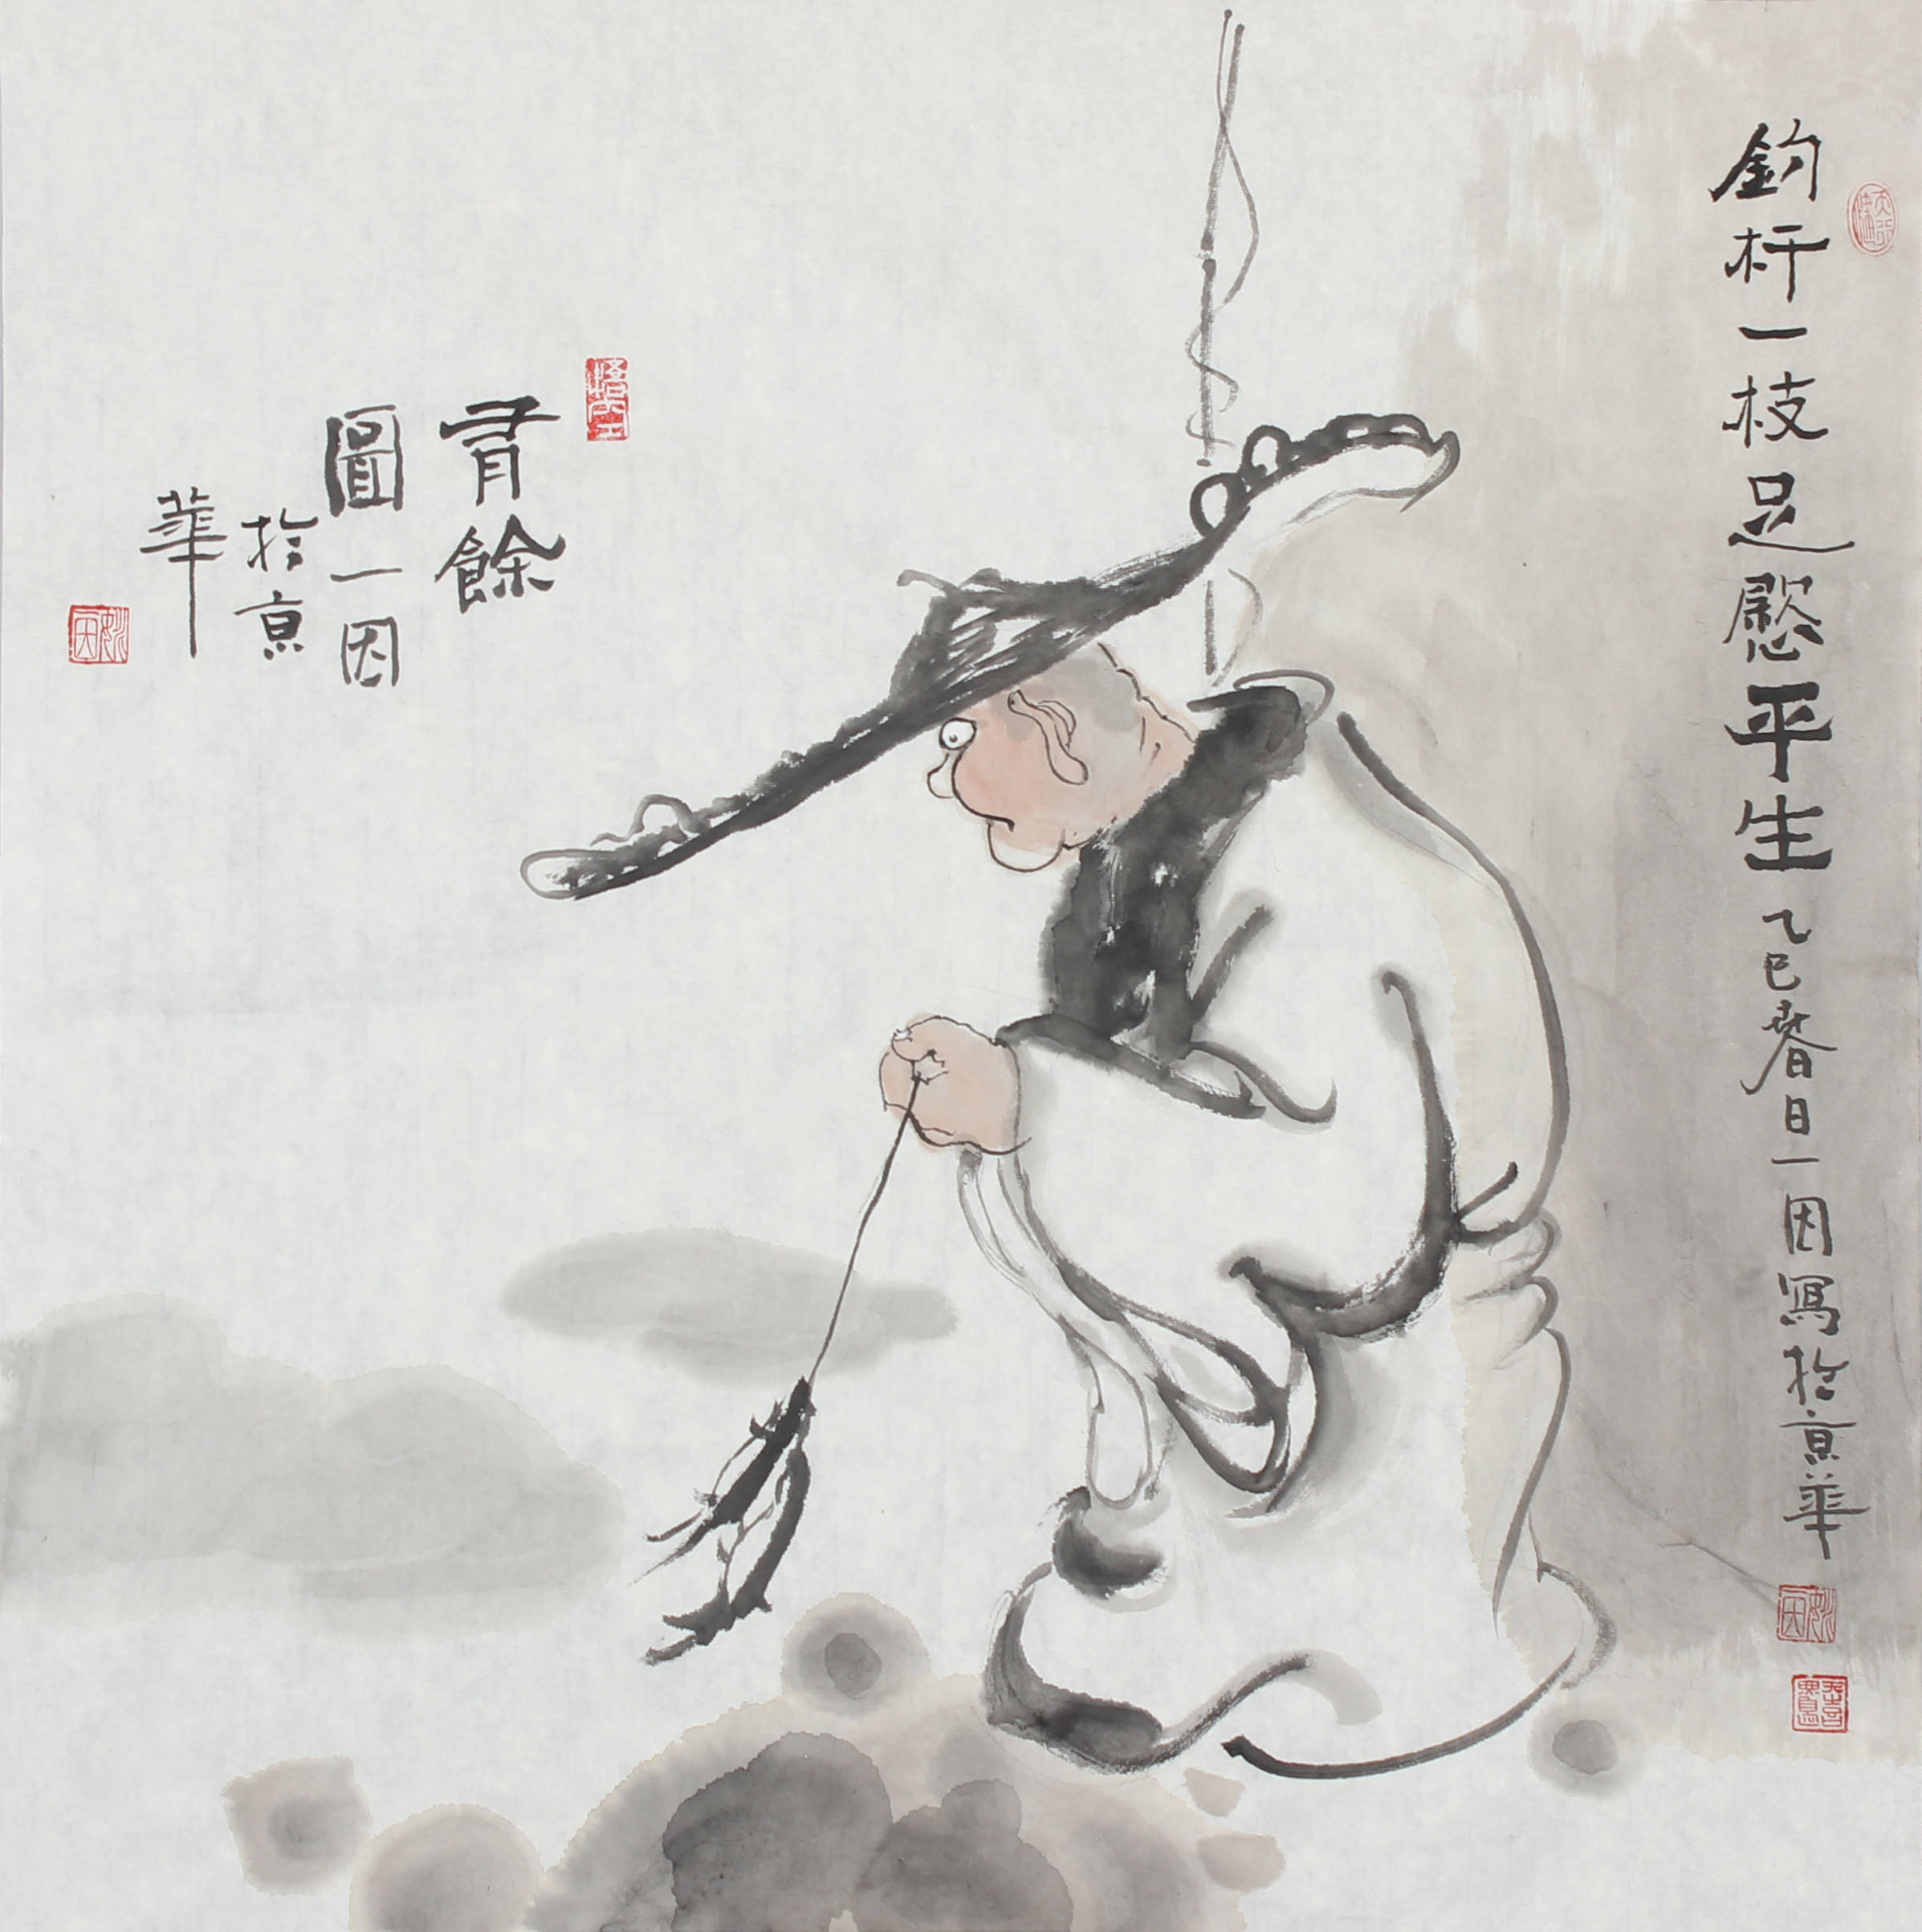 釣杆一枝足慰平生乙巳春日一因寫於京華
有餘
圖一因
於京
華